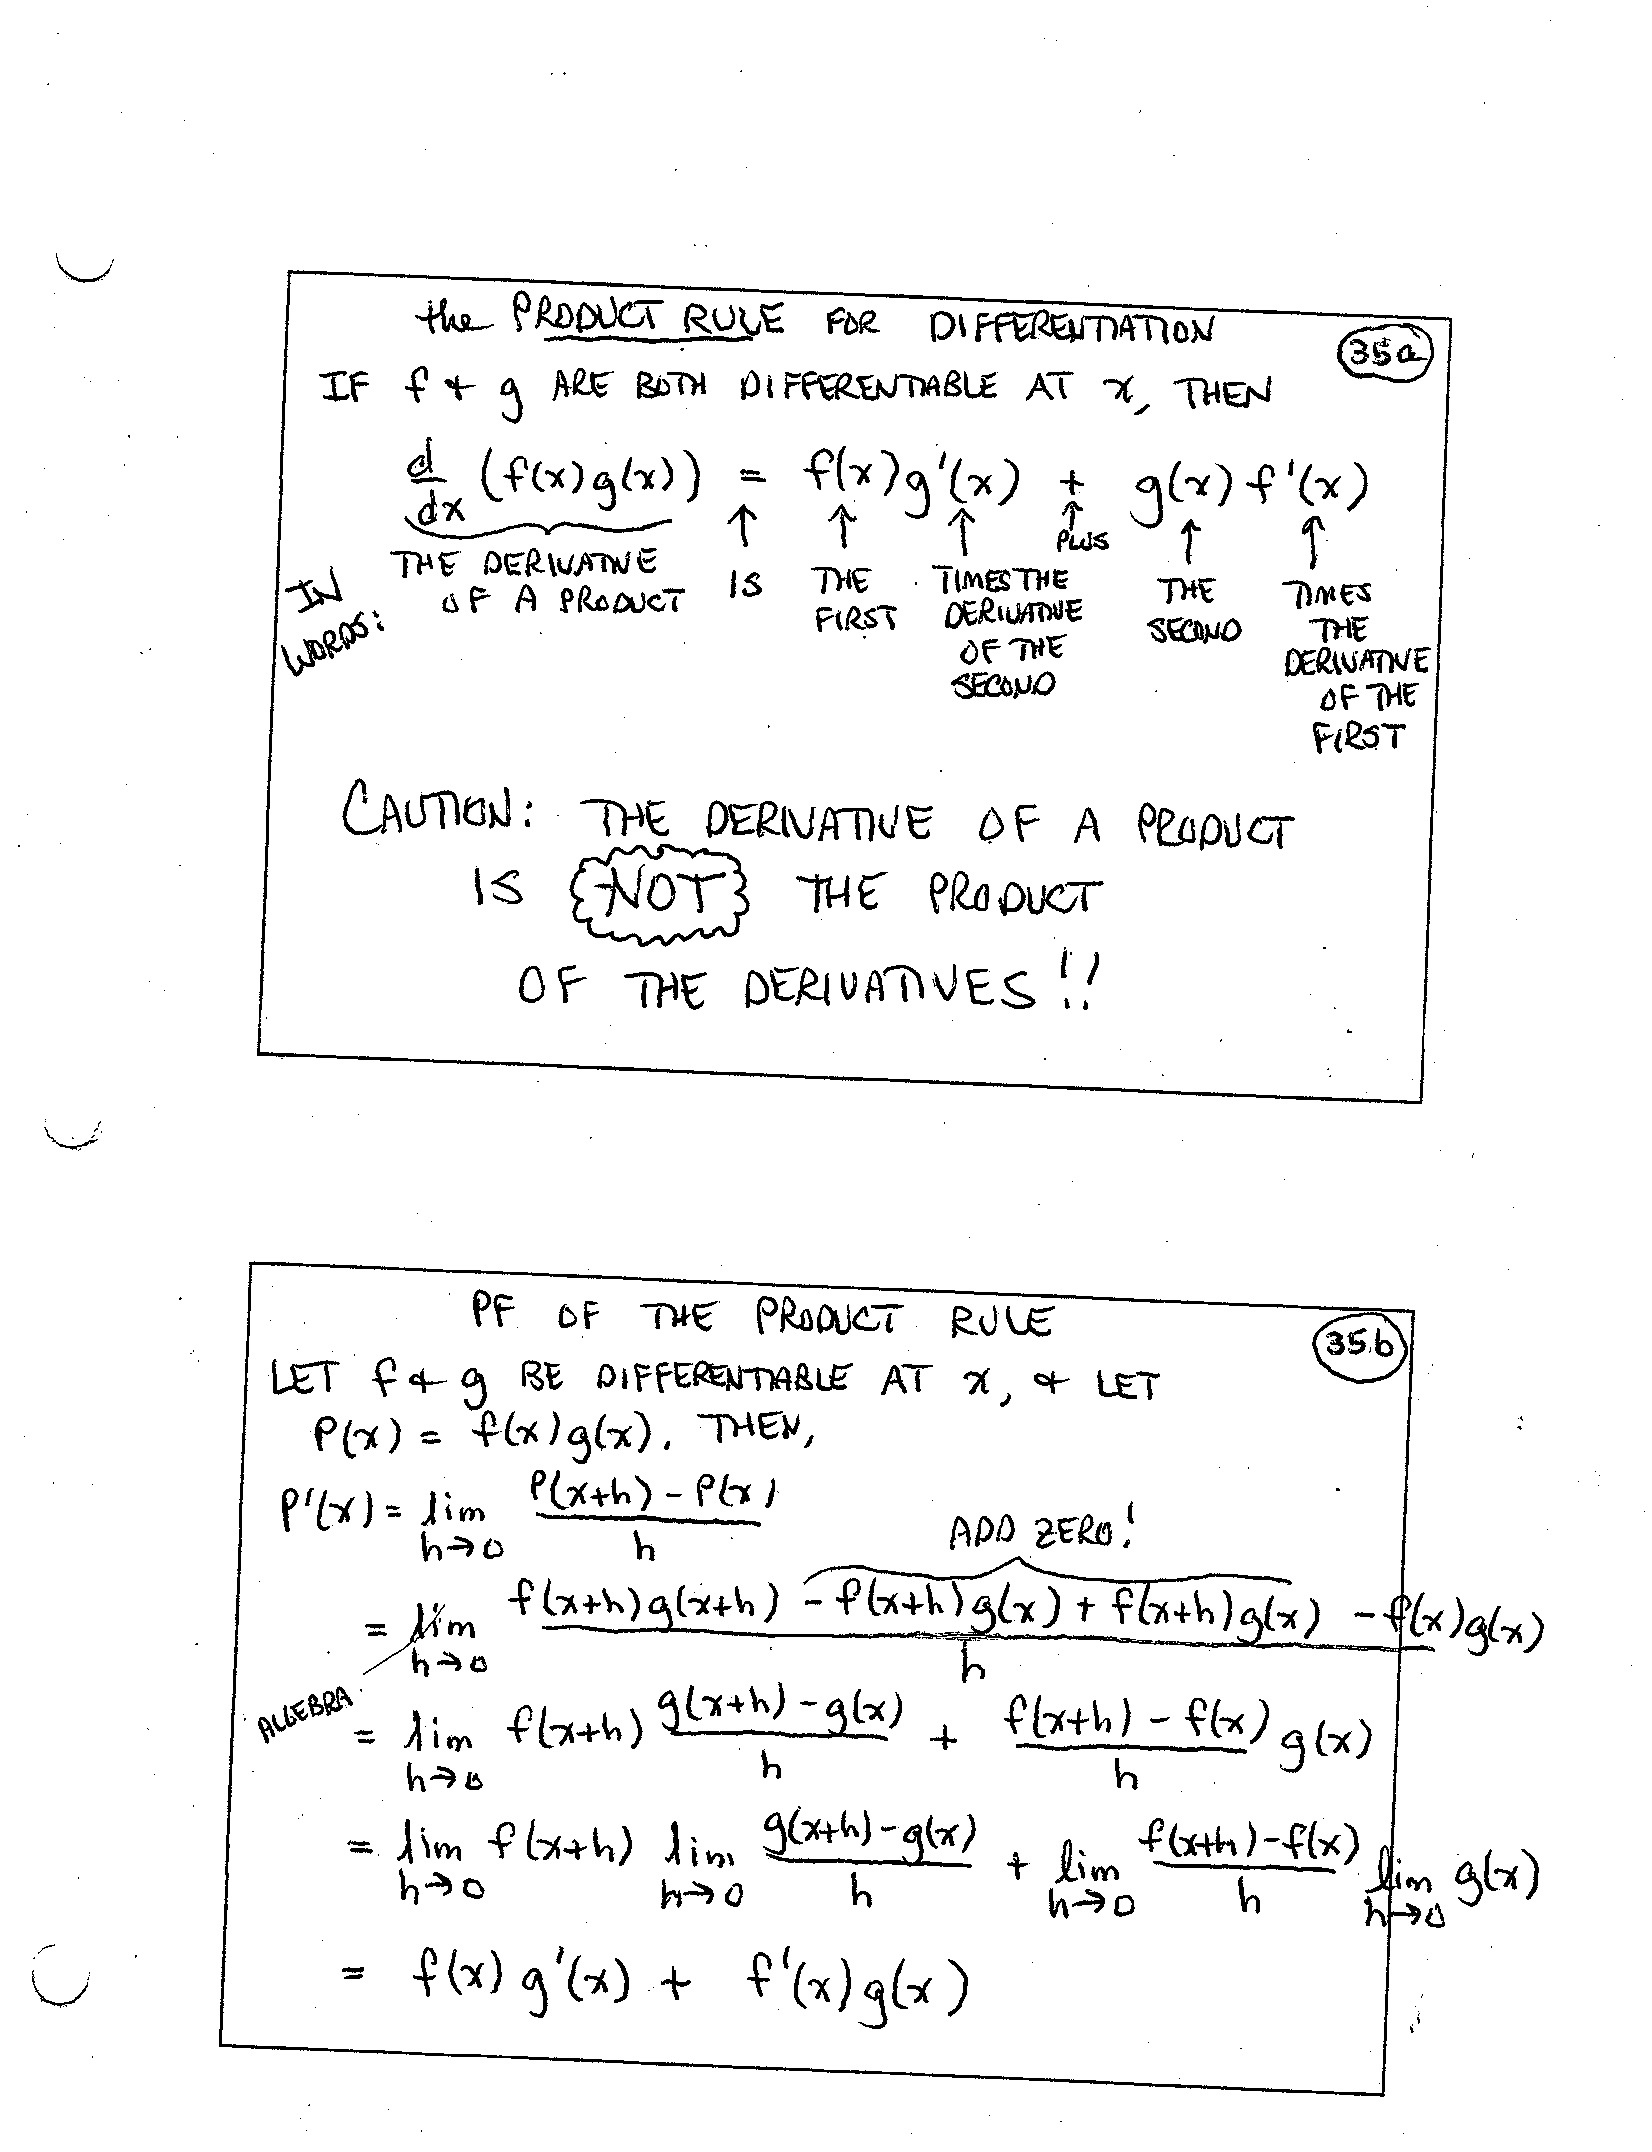 the PRODUCT RULE FOR DIFFERENTIATION
35a
IF f & g ARE BOTH DIFFERENTIABLE AT x, THEN
d/dx (f(x)g(x)) = f(x)g'(x) + g(x)f'(x)
IN WORDS:
THE DERIVATIVE OF A PRODUCT
↑ IS
↑ THE FIRST
↑ TIMES THE DERIVATIVE OF THE SECOND
↑ PLUS
↑ THE SECOND
↑ TIMES THE DERIVATIVE OF THE FIRST
CAUTION: THE DERIVATIVE OF A PRODUCT
IS NOT THE PRODUCT
OF THE DERIVATIVES!!
PF OF THE PRODUCT RULE
35b
LET f & g BE DIFFERENTIABLE AT x, & LET
P(x) = f(x)g(x). THEN,
P'(x) = lim h→0 (P(x+h) - P(x))/h
ADD ZERO!
= lim h→0 (f(x+h)g(x+h) - f(x+h)g(x) + f(x+h)g(x) - f(x)g(x))/h
ALGEBRA
= lim h→0 f(x+h) (g(x+h) - g(x))/h + (f(x+h) - f(x))/h g(x)
= lim h→0 f(x+h) lim h→0 (g(x+h) - g(x))/h + lim h→0 (f(x+h) - f(x))/h lim h→0 g(x)
= f(x)g'(x) + f'(x)g(x)